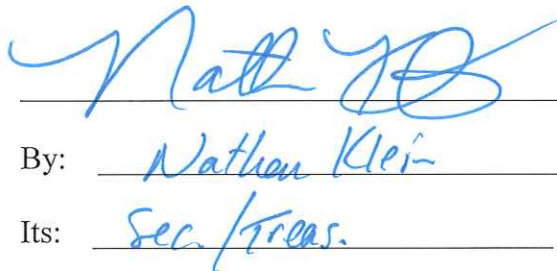 Nathan
By: Nathan Klein
Its: Sec. / Treas.